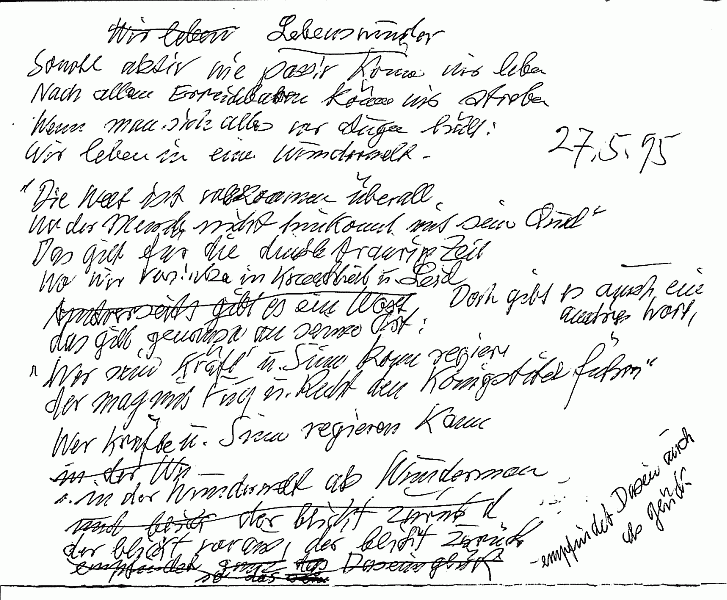 Wir leben Lebenswunder
Sowohl aktiv wie passiv könn wir leben
Nach allem Erreichbaren könn wir streben
Wenn man sich alles vor Augen hält:
Wir leben in eine Wunderwelt.
27.5.95
"Die Welt ist vollkommen überall,
wo der Mensch nicht hinkommt mit sein Qual"
Das gilt für die dunkle traurig Zeit
Wo wir versinken in Krankheit u. Leid
Andrerseits gibt es ein Wort
Doch gibt es auch ein
andres Wort,
das gilt genauso an seinem Ort:
"Wer sein Kräft u. Sinn kann regiern
der mag mit Fug u. Recht den Königstitel führn"
Wer Kräfte u. Sinn regieren kann
in der Wu
in der Wunderwelt als Wundermann
und beider der blickt zurück
der blickt voraus, der blickt zurück
empfindet ganz das Daseinsglück
so das
- empfindet Dasein auch
als